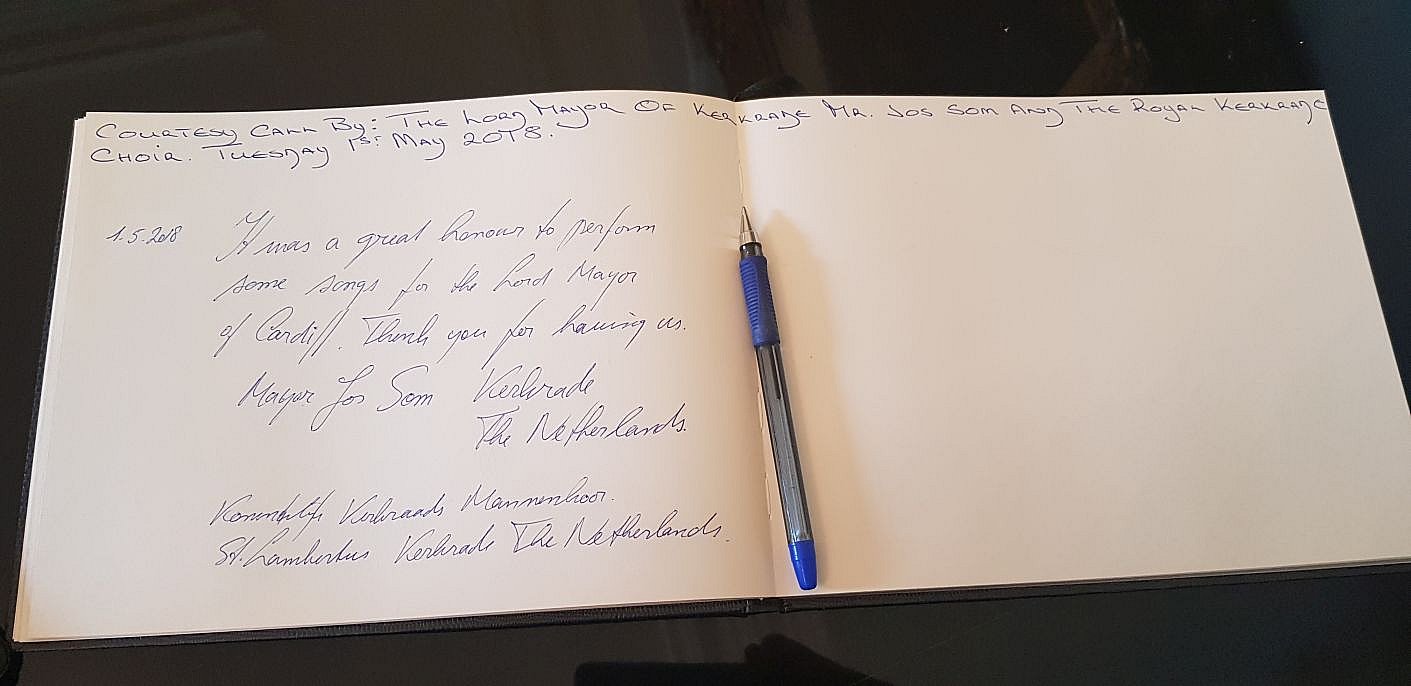 COURTESY CALL BY: THE LORD MAYOR OF KERKRADE MR. JOS SOM AND THE ROYAL KERKRADE
CHOIR. TUESDAY 1ST MAY 2018.
1.5.2018 It was a great honour to perform
some songs for the Lord Mayor
of Cardiff. Thank you for having us.
Mayor Jos Som Kerkrade
The Netherlands.
Koninklijk Kerkraads Mannenkoor.
St. Lambertus Kerkrade The Netherlands.